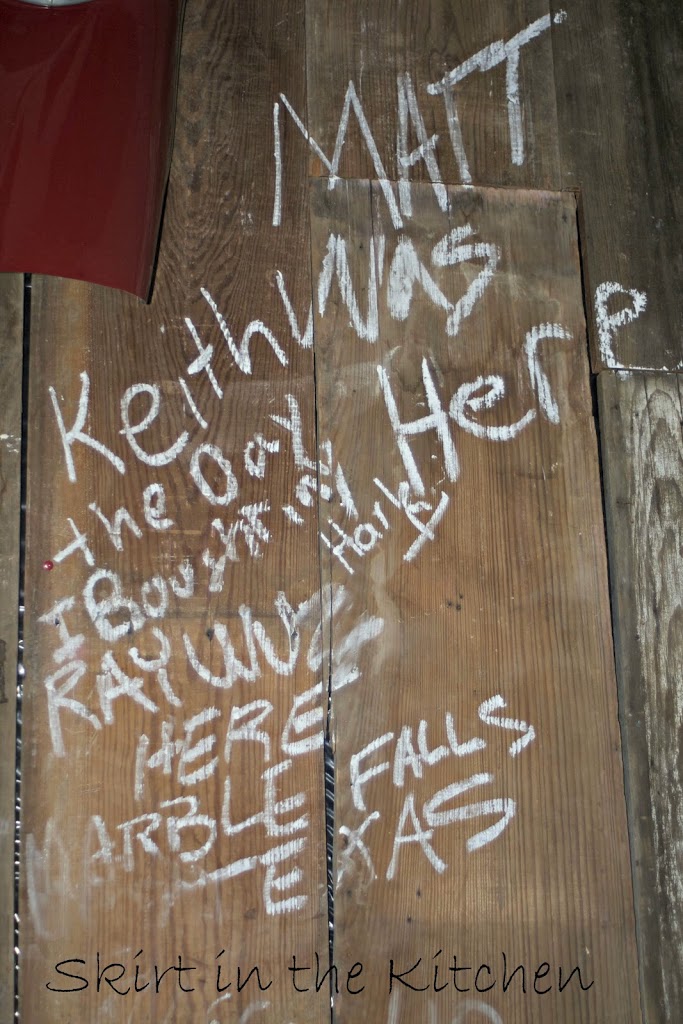 MATT
WAS
Here
Keith
the Day
I Bought my
Harley
RAY WUZ
HERE
MARBLE FALLS
TEXAS
Skirt in the Kitchen